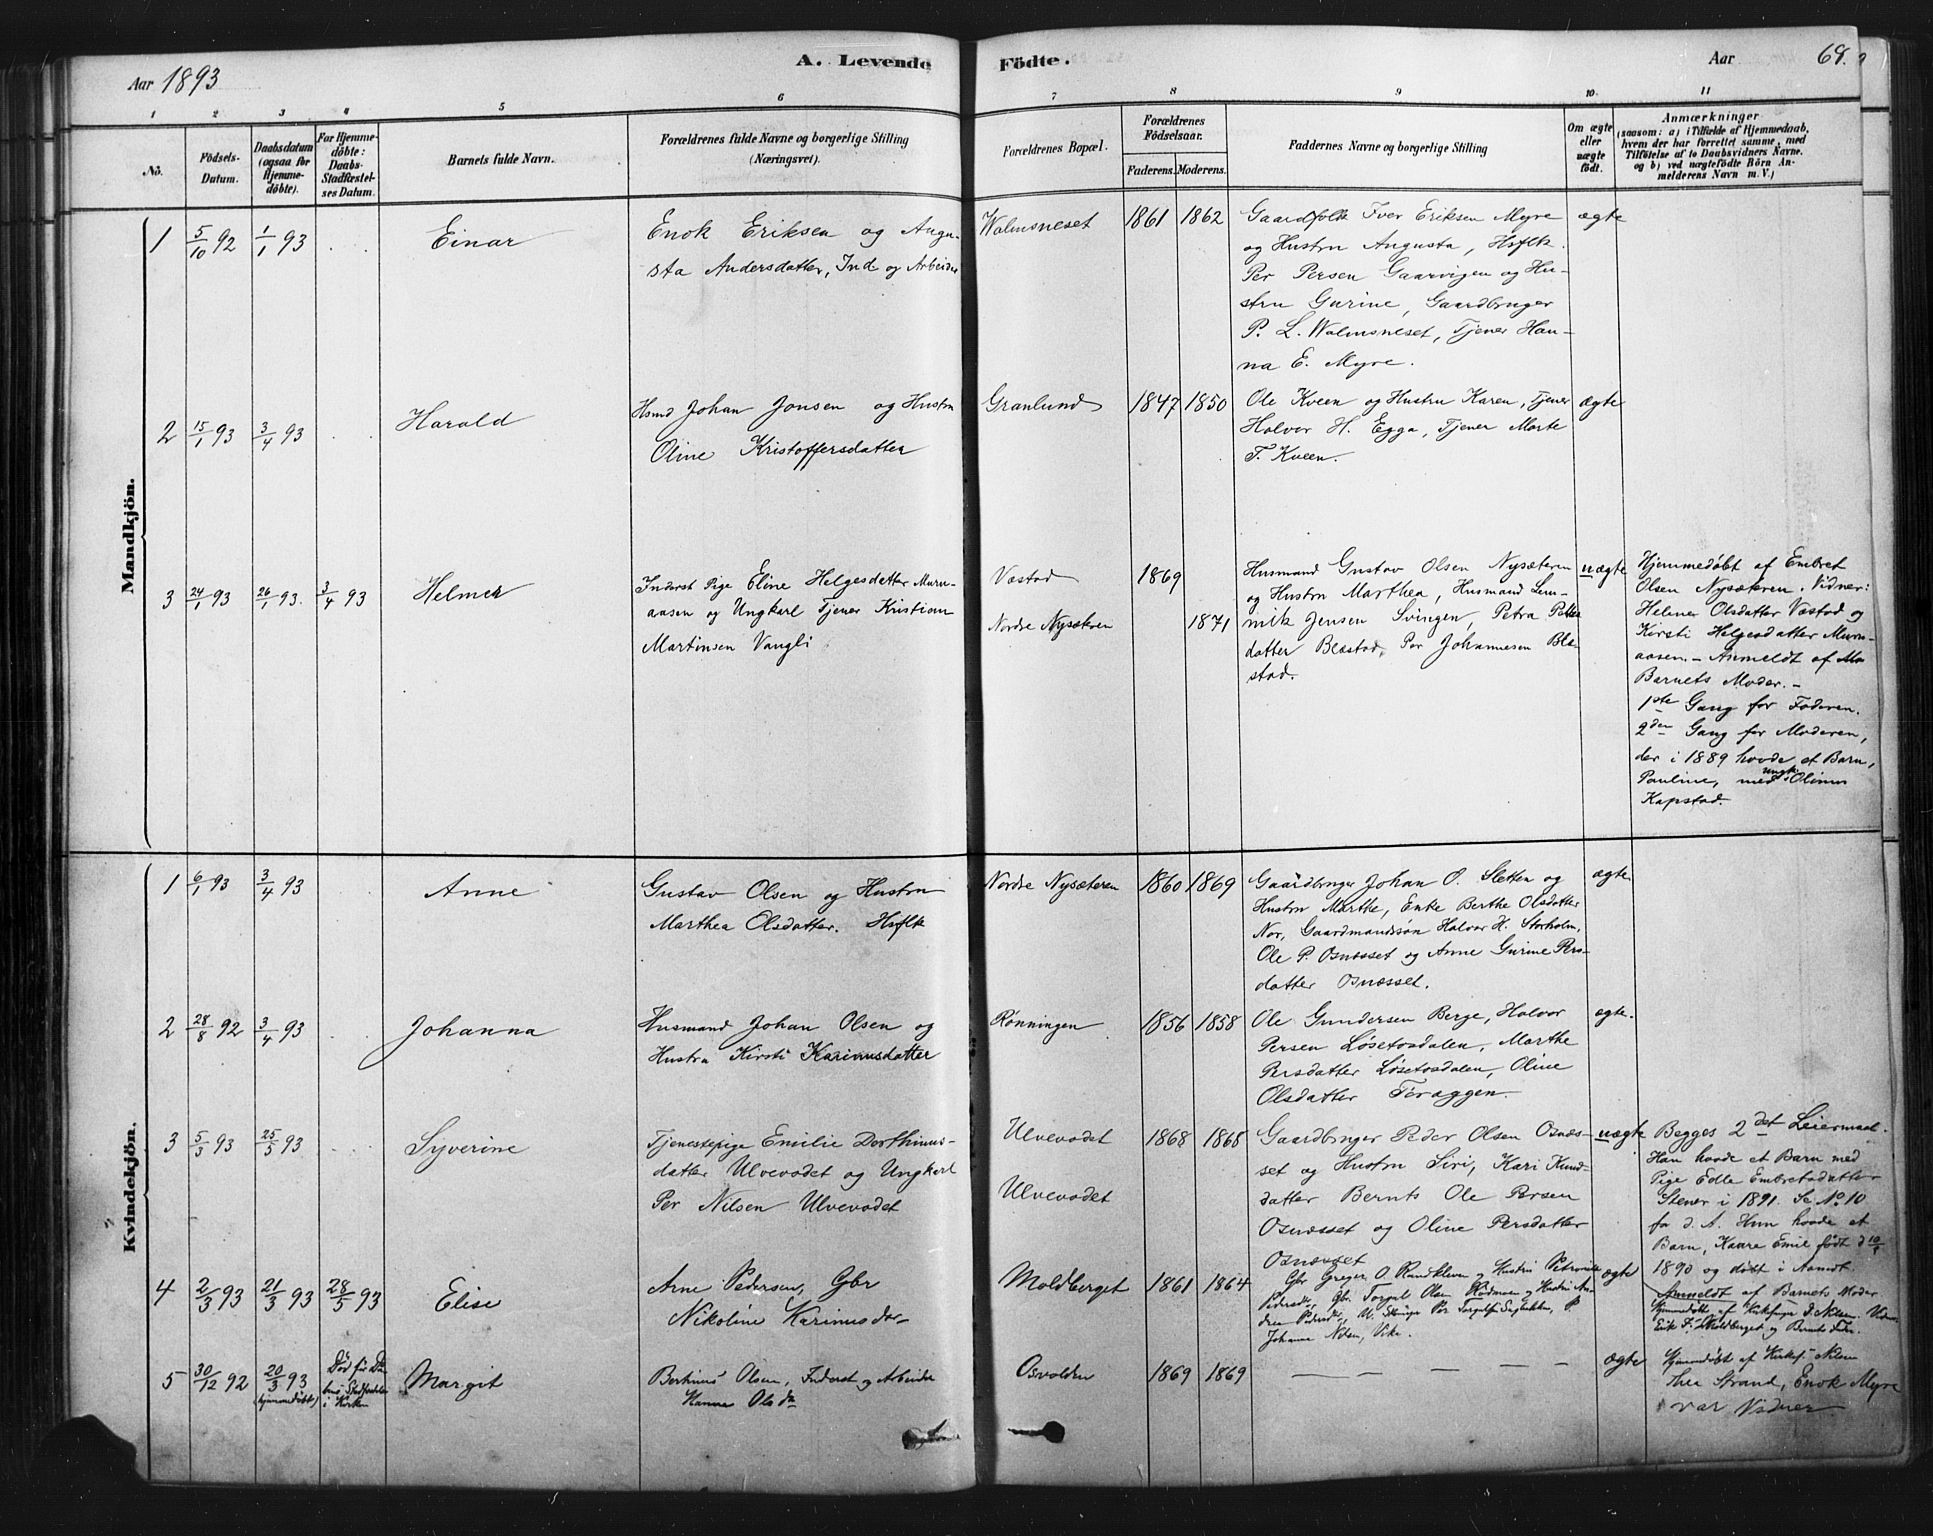 Aar 1893
A. Levende Födte.
Aar
69.
1 2 3 4 5 6 7 8 9 10. 11
No.
Födsels-
Datum.
Daabsdatum
(ogsaa for
Hjemme-
döbte).
For Hjemme-
döbte:
Daabs-
Stadfæstel-
ses Datum.
Barnets fulde Navn.
Forældrenes fulde Navne og borgerlige Stilling
(Næringsvei).
Forældrenes Bopæl.
Forældrenes
Födselsaar.
Faderens. Moderens.
Faddernes Navne og borgerlige Stilling
Om ægte
eller
uægte
födt.
Anmærkninger
(saasom: a) i Tilfælde af Hjemmedaab,
hvem der har forrettet samme, med
Tilföielse af to Daabsvidners Navne.
og b) ved uægtefödte Börn An-
melderens Navn m. V.)
Mandkjön.
1 5/10 92 1/1 93 . . Einar
Enok Eriksen og Augu-
sta Andersdatter, Ind. og Arbeider
Walmsneset 1861 1862
Gaardfolk Iver Eriksen Myre
og Hustru Augusta, Hsflk.
Per Persen Gaarvigen og Hu-
stru Gurine, Gaardbruger
P. L. Walmsneset, Tjener Han-
na E. Myre.
ægte
2 15/1 93 3/4 93 . . Harald
Hsmd Johan Jonsen og Hustru
Oline Kristoffersdatter
Granlund 1847 1850
Ole Kveen og Hustru Karen, Tjener
Halvor H. Egga, Tjener Marte
T. Kveen.
ægte
3 24/1 93 26/1 93. 3/4 93 Helmer
Inderst Pige Eline Helgesdatter Muru-
aasen og Ungkarl Tjener Kristian
Martinsen Vangli
Væstad 1869
Nordre Nysætren 1871
Husmand Gustav Olsen Nysæteren
og Hustru Marthea, Husmand
Jensen Svingen, Petra
datter Blæstad, Per Johannesen Blæ-
stad.
uægte
Hjemmedöbt af Embret
Olsen Nysætren. Vidner:
Helene Olsdatter Væstad og
Kirsti Helgesdatter Muru-
aasen. - Anmeldt af
Barnets Moder. -
1ste Gang for Faderen.
2den Gang for Moderen,
der i 1889 havde et Barn,
Pauline, med Ungk. Olinus
Kapstad.
Kvindekjön.
1 6/1 93 3/4 93 Anne
Gustav Olsen og Hustru
Marthea Olsdatter. Hsflk
Nordre Nysæteren 1860 1869
Gaardbruger Johan O. Sletten og
Hustru Marthe, Enke Berthe Olsdatter
Nor, Gaardmandssön Halvor H. Storholm,
Ole P. Osnæsset og Anne Gurine Pers-
datter Osnæsset.
ægte
2 28/8 92 3/4 93 . . Johanna
Husmand Johan Olsen og
Hustru Kirsti Karinusdatter
Rønningen 1856 1858
Ole Gundersen Berge, Halvor
Persen Løsetosdalen, Marthe
Persdatter Løsetosdalen, Oline
Olsdatter Töraggen.
ægte.
3 5/3 93 25/5 93 . . . Syverine
Tjenestepige Emilie Dorthinus-
datter Ulvevadet og Ungkarl
Per Nilsen Ulvevadet
Ulvevadet 1868 1868
Ulvevadet
Gaardbruger Peder Olsen Osnæs-
set og Hustru Siri, Kari Knud-
datter Bernts Ole Persen
Osnæsset og Oline Persdatter
Osnæsset
uægte
Begges 2det Leiermaal.
Han havde et Barn med
Pige Edle Embretsdatter
Stener i 1891. Se No 10
for d. A. Hun havde et
Barn, Kaare Emil født d 10/9
1890 og döbt i Aamot.
Anmeldt af Barnets Moder
4 2/3 93 21/3 93 28/5 93 Elise
Arne Pedersen, Gbr
Nikoline Karinusdr-
Moldberget 1861 1864
Gbr Greger O. Rundkleven og Hustru
Pedersdr, Gbr. Torgal Olsen og Hustru An-
drea Pedersdr,
Johanne Nilsen, Vike.
ægte
Hjemmedöbt af Kirkesanger J. Nilsen. Vidner
Erik P. Moldberget og Bernt
5 30/12 92 20/3 93 (hjemmedöbt) Död för Daa-
bens Stadfæstelse
i Kirken
Margit
Berthinus Olsen, Inderst og Arbeider
Hanna Olsdtr
Osvolden 1869 1869
— — — —
ægte
Hjemmedöbt af Kirkes. Nilsen
Thea Strand, Enok Myre
var Vidner